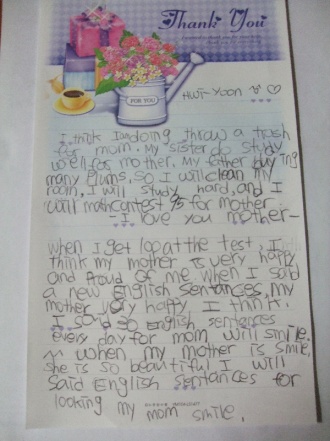 Thank You
FOR YOU
HWI-YOON ♡
I think I'm doing throw a trash
for mom. My sister do study
well for mother. My father buying
many plums, so I will clean my
room, I will study hard, and I
will mathcontest 95 for mother.
- I love you mother-
when I get 100 at the test, I
think my mother is very happy
and Proud of me when I said
a new English sentances, my
mother very happy I think.
I said 30 English sentances
every day for mom will smile.
^^ when my mother is smile,
she is so beautiful I will
said English sentances for
looking my mom smile.